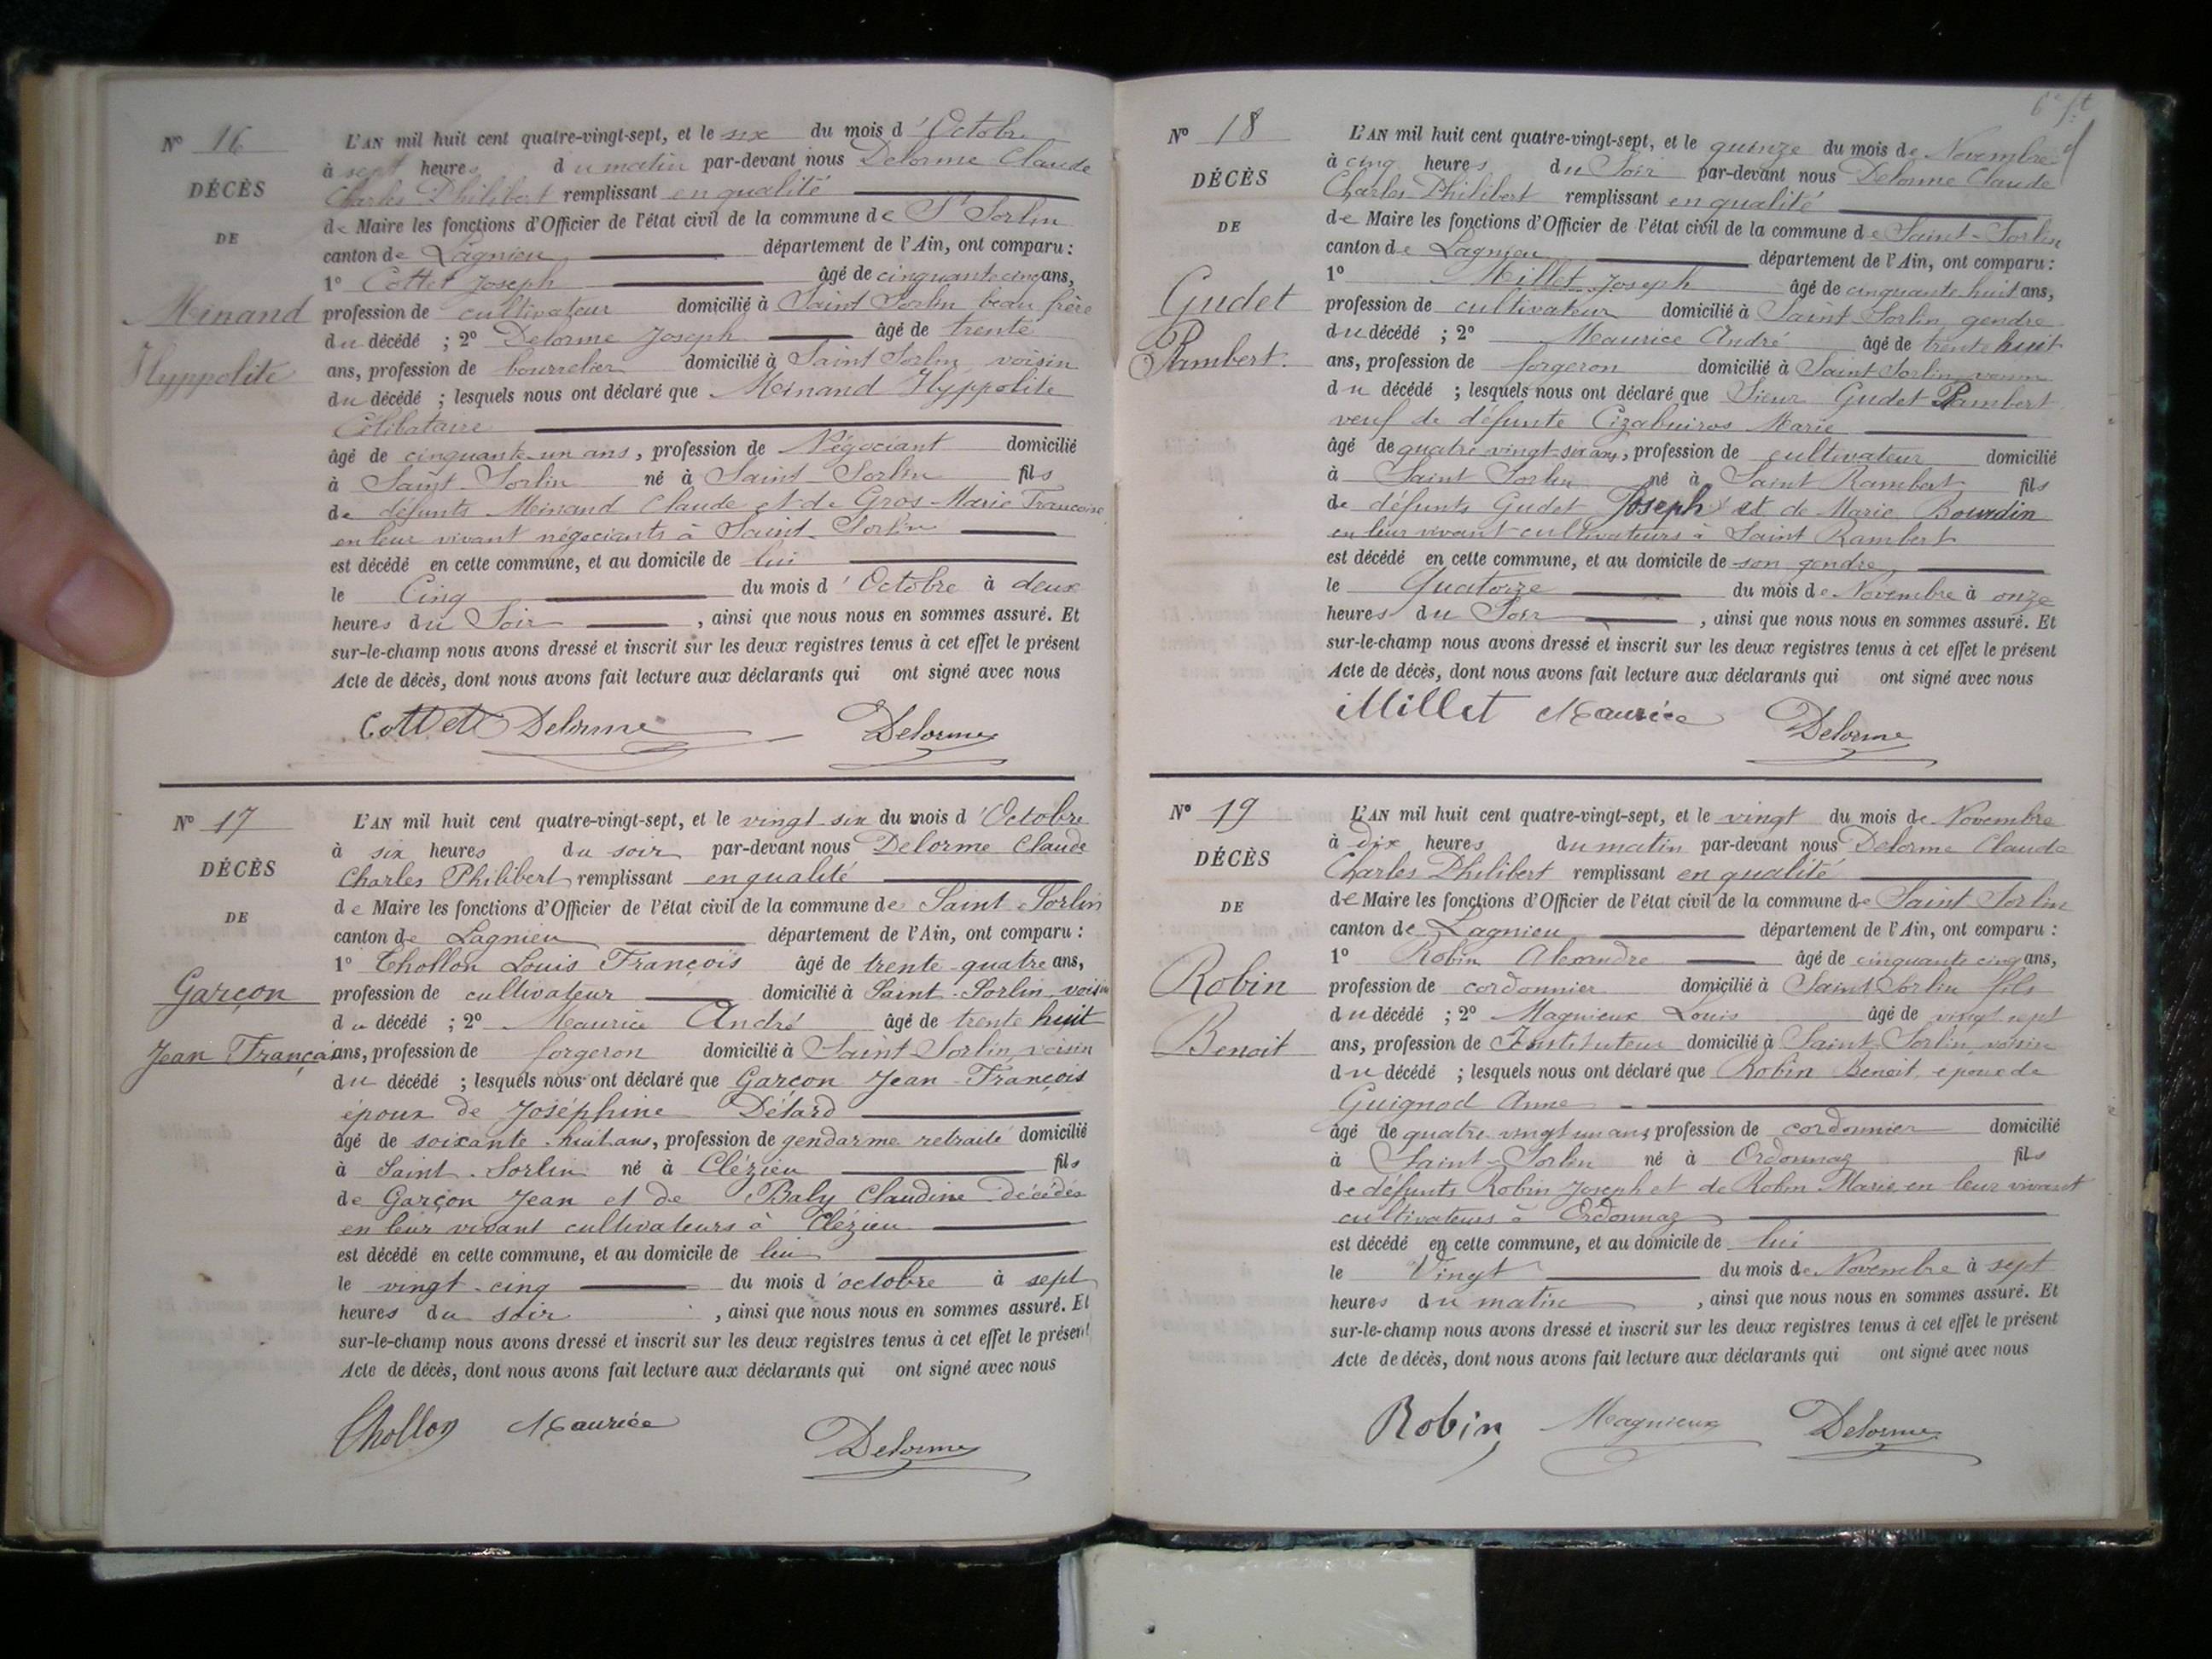 N° 16
DÉCÈS
DE
Meinand
Hyppolite
L'AN mil huit cent quatre-vingt-sept, et le six du mois d'Octobre
à sept heures du matin par-devant nous Delorme Claude
Charles Philibert remplissant en qualité
de Maire les fonctions d'Officier de l'état civil de la commune de St Sorlin
canton de Lagnieu département de l'Ain, ont comparu :
1° Cottet Joseph âgé de cinquante cinq ans,
profession de cultivateur domicilié à Saint Sorlin beau frère
du décédé ; 2° Delorme Joseph âgé de trente
ans, profession de bourrelier domicilié à Saint Sorlin voisin
du décédé ; lesquels nous ont déclaré que Meinand Hyppolite
Célibataire
âgé de cinquante un ans, profession de Négociant domicilié
à Saint-Sorlin né à Saint-Sorlin fils
de défunts Meinand Claude et de Gros Marie Francoise
en leur vivant négociants à Saint-Sorlin
est décédé en cette commune, et au domicile de lui
le Cinq du mois d'Octobre à deux
heures du Soir , ainsi que nous nous en sommes assuré. Et
sur-le-champ nous avons dressé et inscrit sur les deux registres tenus à cet effet le présent
Acte de décès, dont nous avons fait lecture aux déclarants qui ont signé avec nous
Cottet Delorme Delorme
N° 17
DÉCÈS
DE
Garçon
Jean François
L'AN mil huit cent quatre-vingt-sept, et le vingt-six du mois d'Octobre
à six heures du soir par-devant nous Delorme Claude
Charles Philibert remplissant en qualité
de Maire les fonctions d'Officier de l'état civil de la commune de Saint-Sorlin
canton de Lagnieu département de l'Ain, ont comparu :
1° Chollon Louis François âgé de trente-quatre ans,
profession de cultivateur domicilié à Saint-Sorlin voisin
du décédé ; 2° Maurice André âgé de trente huit
ans, profession de forgeron domicilié à Saint-Sorlin, voisin
du décédé ; lesquels nous ont déclaré que Garçon Jean-François
époux de Joséphine Détard
âgé de soixante-huit ans, profession de gendarme retraité domicilié
à Saint-Sorlin né à Clézieu fils
de Garçon Jean et de Baly Claudine décédés
en leur vivant cultivateurs à Clézieu
est décédé en cette commune, et au domicile de lui
le vingt-cinq du mois d'octobre à sept
heures du soir , ainsi que nous nous en sommes assuré. Et
sur-le-champ nous avons dressé et inscrit sur les deux registres tenus à cet effet le présent
Acte de décès, dont nous avons fait lecture aux déclarants qui ont signé avec nous
Chollon Maurice Delorme
N° 18
DÉCÈS
DE
Gudet
Rambert.
L'AN mil huit cent quatre-vingt-sept, et le quinze du mois de Novembre
à cinq heures du Soir par-devant nous Delorme Claude
Charles Philibert remplissant en qualité
de Maire les fonctions d'Officier de l'état civil de la commune de Saint-Sorlin
canton de Lagnieu département de l'Ain, ont comparu :
1° Millet Joseph âgé de cinquante huit ans,
profession de cultivateur domicilié à Saint-Sorlin, gendre
du décédé ; 2° Maurice André âgé de trente huit
ans, profession de forgeron domicilié à Saint Sorlin voisin
du décédé ; lesquels nous ont déclaré que Sieur Gudet Rambert
veuf de défunte Cizabuiros Marie
âgé de quatre vingt six ans, profession de cultivateur domicilié
à Saint Sorlin né à Saint Rambert fils
de défunts Gudet Joseph et de Marie Bourdin
en leur vivant cultivateurs à Saint Rambert
est décédé en cette commune, et au domicile de son gendre,
le Quatorze du mois de Novembre à onze
heures du Soir , ainsi que nous nous en sommes assuré. Et
sur-le-champ nous avons dressé et inscrit sur les deux registres tenus à cet effet le présent
Acte de décès, dont nous avons fait lecture aux déclarants qui ont signé avec nous
Millet Maurice Delorme
N° 19
DÉCÈS
DE
Robin
Benoit
L'AN mil huit cent quatre-vingt-sept, et le vingt du mois de Novembre
à dix heures du matin par-devant nous Delorme Claude
Charles Philibert remplissant en qualité
de Maire les fonctions d'Officier de l'état civil de la commune de Saint Sorlin
canton de Lagnieu département de l'Ain, ont comparu :
1° Robin Alexandre âgé de cinquante cinq ans,
profession de cordonnier domicilié à Saint Sorlin fils
du décédé ; 2° Magnieux Louis âgé de vingt sept
ans, profession de Instituteur domicilié à Saint-Sorlin, voisin
du décédé ; lesquels nous ont déclaré que Robin Benoit, époux de
Guignod Anne
âgé de quatre vingt un ans, profession de cordonnier domicilié
à Saint-Sorlin né à Ordonnaz fils
de défunts Robin Joseph et de Robin Marie en leur vivant
cultivateurs à Ordonnaz
est décédé en cette commune, et au domicile de lui
le Vingt du mois de Novembre à sept
heures du matin , ainsi que nous nous en sommes assuré. Et
sur-le-champ nous avons dressé et inscrit sur les deux registres tenus à cet effet le présent
Acte de décès, dont nous avons fait lecture aux déclarants qui ont signé avec nous
Robin Magnieux Delorme